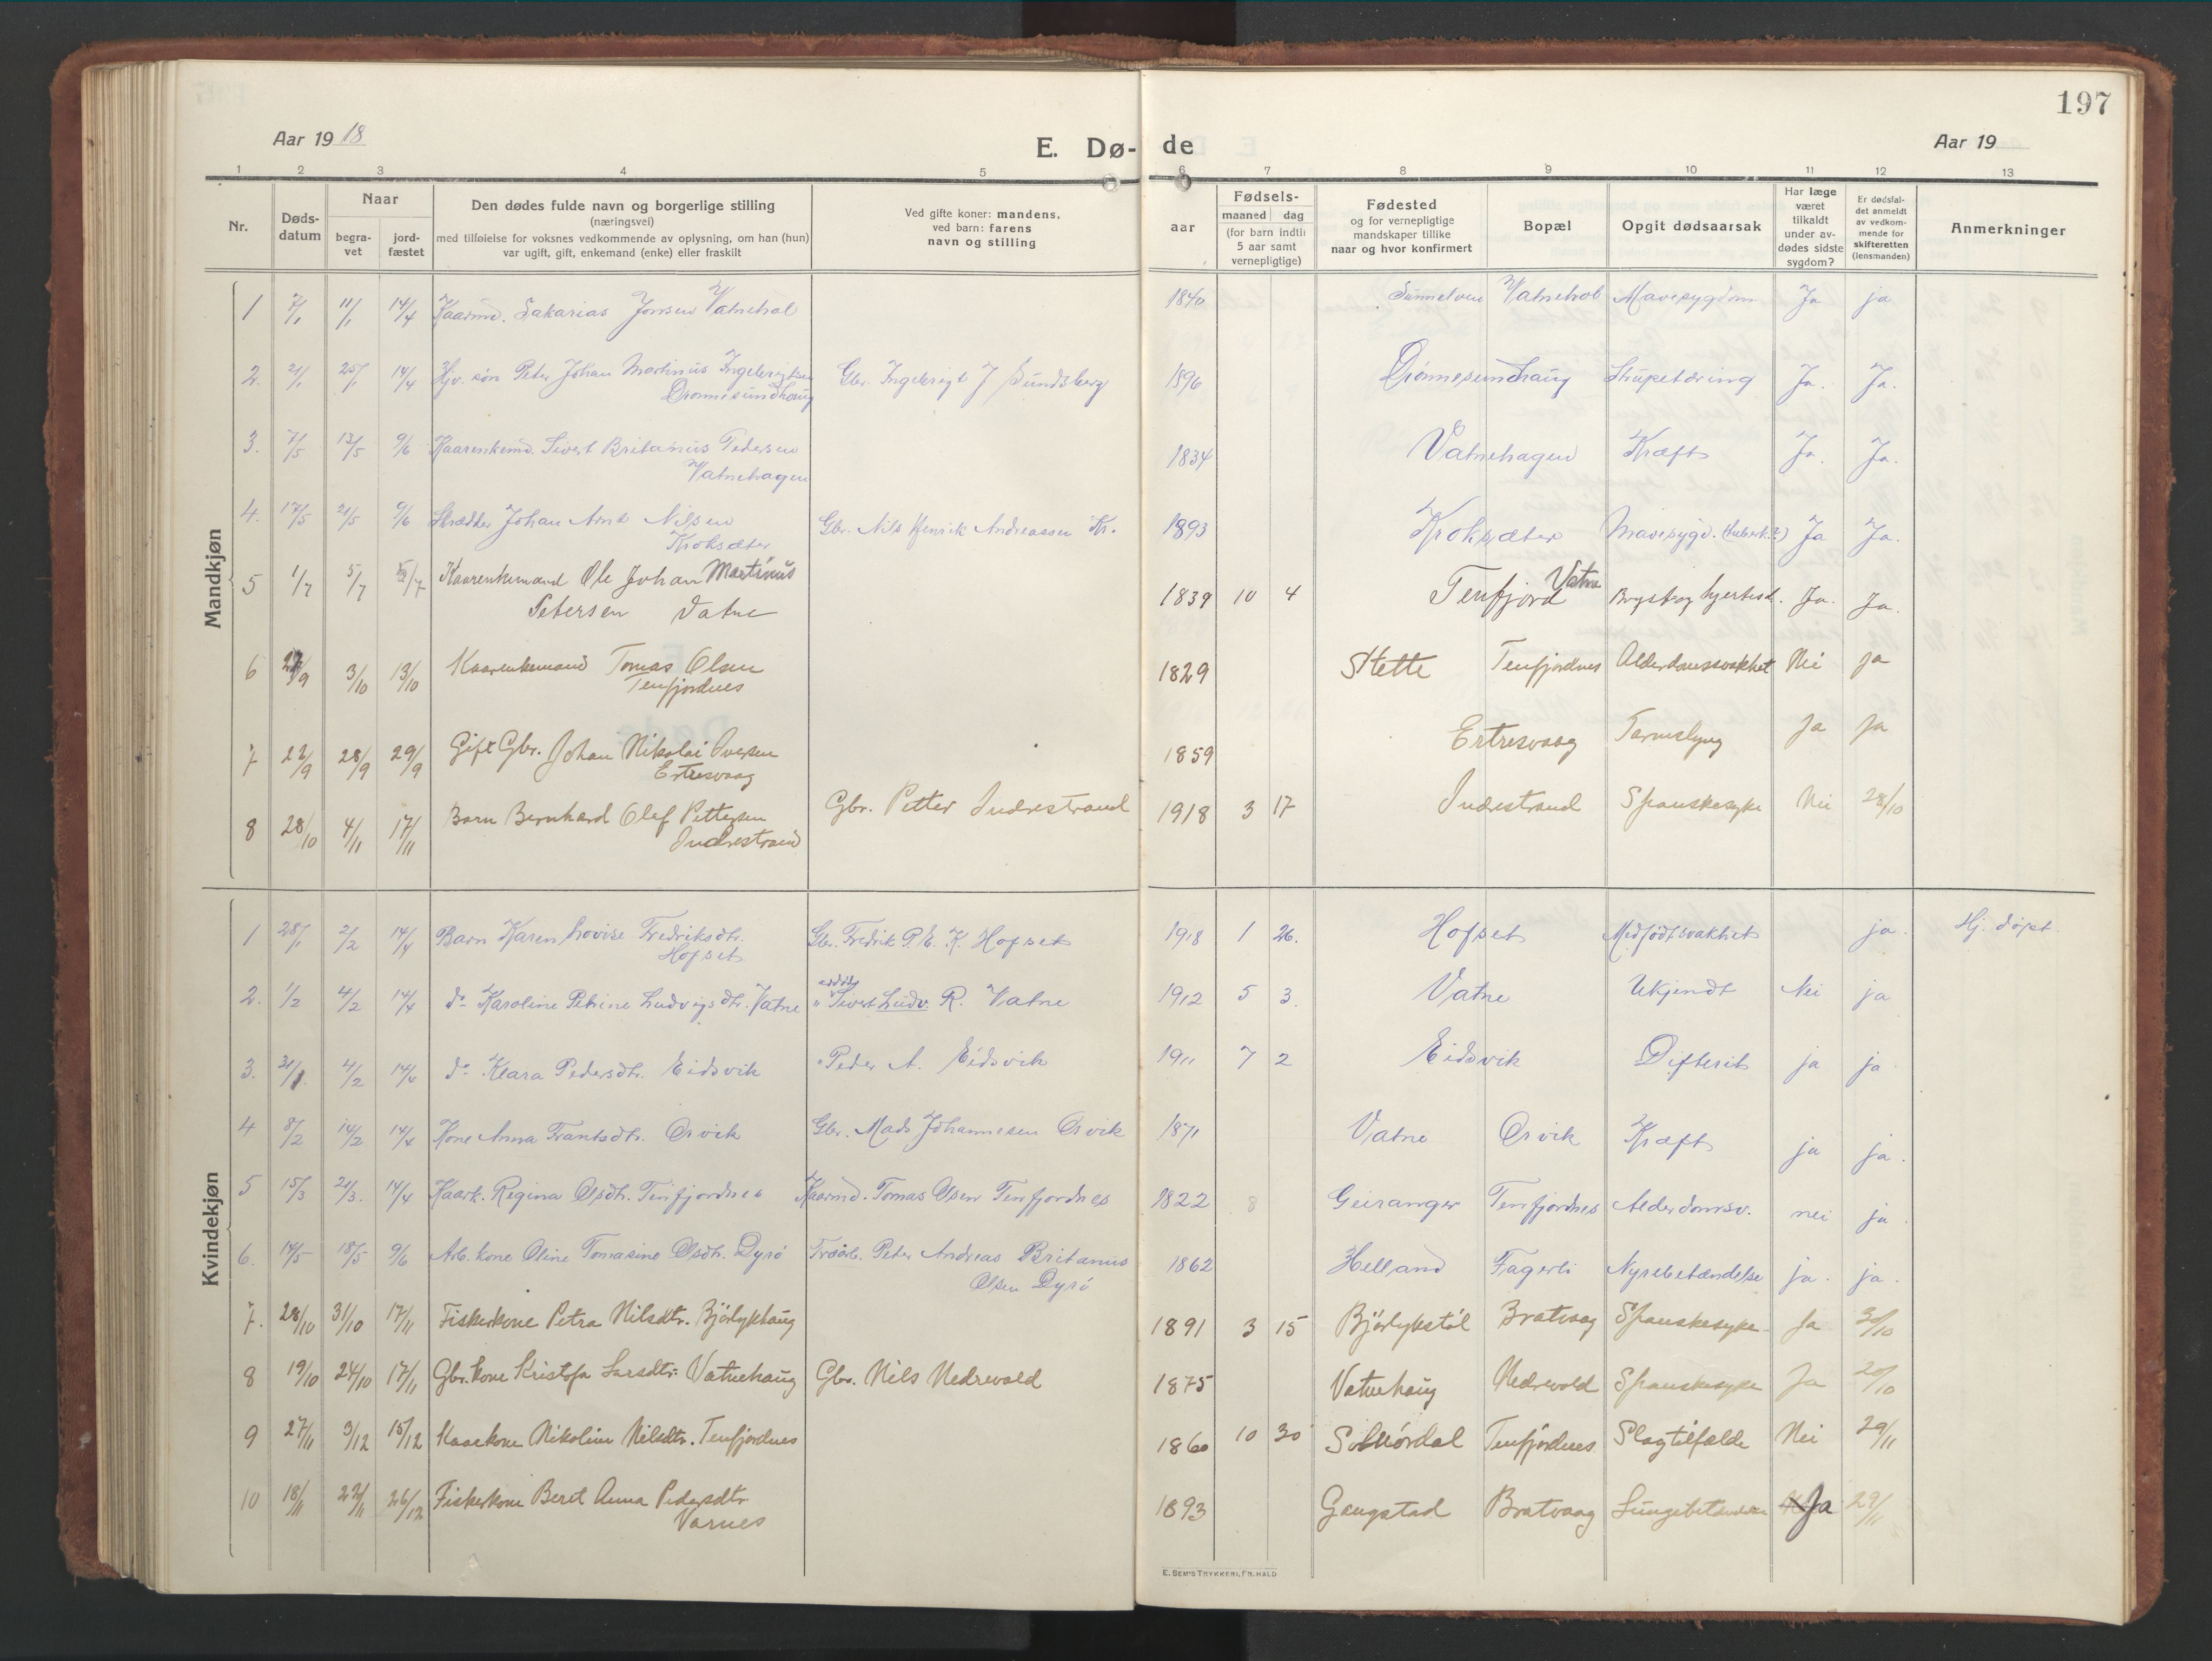 197
Aar 1918
E. Dø-
de
Aar 19
1 2 3 4 5 6 7 8 9 10 11 12 13
Nr.
Døds-
datum
Naar
begra-
vet
jord-
fæstet
Den dødes fulde navn og borgerlige stilling
(næringsvei)
med tilføielse for voksnes vedkommende av oplysning, om han (hun)
var ugift, gift, enkemand (enke) eller fraskilt
Ved gifte koner: mandens,
ved barn: farens
navn og stilling
Fødsels-
aar
maaned dag
(for barn indtil
5 aar samt
vernepligtige)
Fødested
og for vernepligtige
mandskaper tillike
naar og hvor konfirmert
Bopæl
Opgit dødsaarsak
Har læge
været
tilkaldt
under av-
dødes sidste
sygdom?
Er dødsfal-
det anmeldt
av vedkom-
mende for
skifteretten
(lensmanden)
Anmerkninger
Mandkjøn
1 7/1 11/1 14/4 Kaarmd. Sakarias Jonsen Vatnehol 1840 Sunnelven Vatnehol Mavesygdom Ja ja
2. 21/1 25/1 14/4 Hjv. søn Peter Johan Martinus Ingebrigtsen Gbr. Ingebrigt J Sundsberg 1896 Drønnesundhaug Strupetæring Ja. Ja.
Drønnesundhaug
3. 7/5 13/5 9/6 Kaarenkemd. Sivert Britanus Pedersen 1834 Vatnehagen Kræft Ja. Ja.
Vatnehagen
4. 17/5 21/5 9/6 Skrædder Johan Arnt Nilsen Gbr. Nils Henrik Andreassen Kr. 1893 Kroksæter Mavesygd. (tuberk.?) Ja Ja.
Kroksæter
5 1/7 5/7 5/7 Kaarenkemand Ole Johan Martinus 1839 10 4 Tenfjord Vatne Bryst og hjertesd. Ja. Ja.
Petersen Vatne
6 27/9 3/10 13/10 Kaarenkemand Tomas Olsen 1829 Stette Tenfjordnes Alderdomssvakhet Nei ja
Tenfjordnes
7 22/9 28/9 29/9 Gift Gbr. Johan Nikolai Iversen 1859 Ertresvaag Tarmslyng Ja Ja
Ertresvaag
8 28/10 4/11 17/11 Barn Bernhard Olaf Pettersen Gbr. Petter Indrestrand 1918 3 17 Indrestrand Spanskesyke Nei 28/10
Indrestrand
Kvindekjøn
1 28/1 2/2 14/4 Barn Karen Lovise Fredriksdtr. Gbr. Fredrik P. E. K. Hofset 1918 1 26. Hofset Medfødt svakhet ja. Hj. døpt
Hofset
2. 1/2 4/2 14/4 do Karoline Petrine Ludvigsdtr. Vatne " Sivert Ludv. R. Vatne 1912 5 3. Vatne Ukjendt Nei ja
3. 31/1 4/2 14/4 do Klara Pedersdtr. Eidsvik " Peder A. Eidsvik 1911 7 2 Eidsvik Difterit ja ja
4 8/2 14/2 14/4 Kone Anna Frantsdtr.Ørvik Gbr. Mads Johannesen Ørvik 1871 Vatne Ørvik Kræft ja ja.
5 15/3 21/3. 14/4 Kaark. Regina Olsdtr. Tenfjordnes Kaarmd. Tomas Olsen Tenfjordnes 1822 8 Geiranger Tenfjordnes Alderdomsv. nei ja.
6. 14/5 18/5 9/6 Arb. kone Oline Tomasine Olsdtr. Dyrø Peter Andreas Britanus 1862 Helland Fagerli Nyrebetændelse ja. ja.
Olsen Dyrø
7. 28/10 31/10 17/11 Fiskerkone Petra Nilsdtr. Bjørlykhaug 1891 3 15 Bjørlykstøl Bratvaag Spanskesyke Ja 30/10
8 19/10 24/10 17/11 Gbr. kone Kristofa Larsdtr: Vatnehaug Gbr. Nils Nedrevold 1875 Vatnehaug Nedrevold Spanskesyke Ja 20/10
9 27/11 3/12 15/12 Kaarkone Nikoline Nilsdtr. Tenfjordnes 1860 10 30 Solnørdal Tenfjordnes Slagtilfælde Nei 29/11
10 18/11 22/11 26/12 Fiskerkone Beret Anna Pedersdtr. 1893 Gangstad Bratvaag Lungebetændelse Ja 29/11
Varnes
E. SEM'S TRYKKERI, FR. HALD